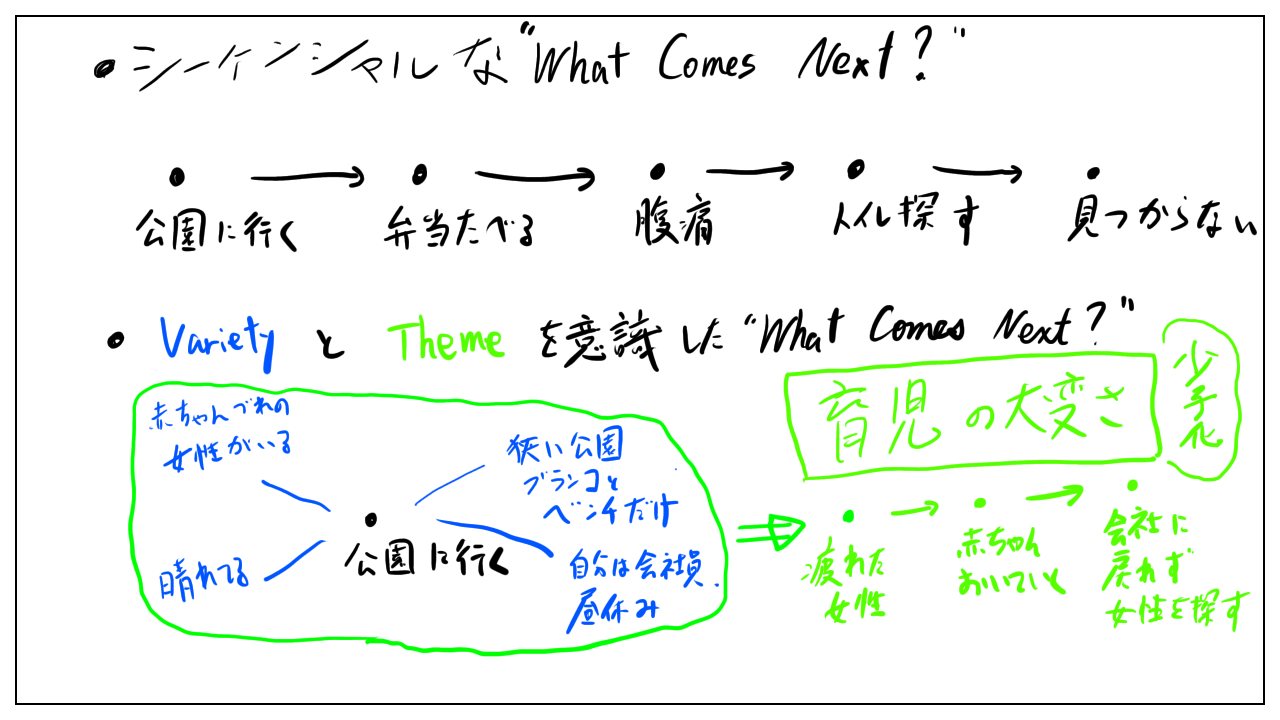 シーケンシャルな"What Comes Next?"
公園に行く
弁当たべる
腹痛
トイレ探す
見つからない
Variety と Theme を意識した"What Comes Next?"
赤ちゃんづれの
女性がいる
狭い公園
ブランコと
ベンチだけ
晴れてる
公園に行く
自分は会社員.
昼休み
育児の大変さ
少子化
疲れた
女性
赤ちゃん
おいていく
会社に
戻れず
女性を探す